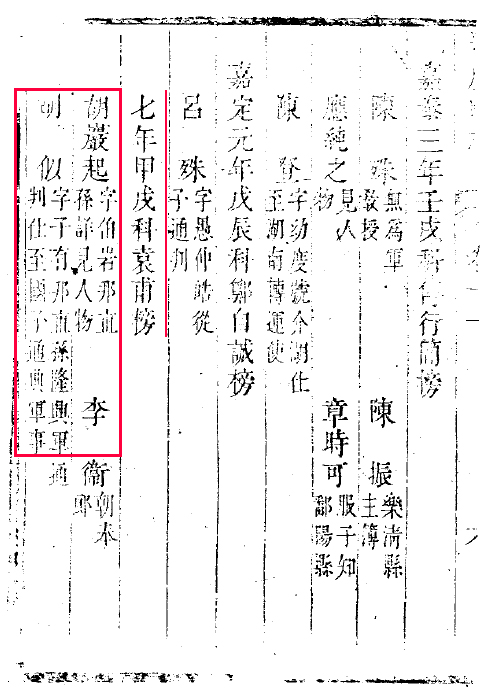 嘉泰三年壬戌科傅行簡榜
陳殊 無爲軍教授
陳振 樂清縣主簿
應純之 見人物
章時可 服子知鄱陽縣
陳登 字幼度號介湖仕至湖南轉運使
嘉定元年戊辰科鄭自誠榜
呂殊 字愚仲皓從子通判
七年甲戌科袁甫榜
胡巖起 字伯岩那直孫詳見人物
李衞 朝奉郎
胡似 字子有那直孫隆興軍通判仕至國子通興軍事